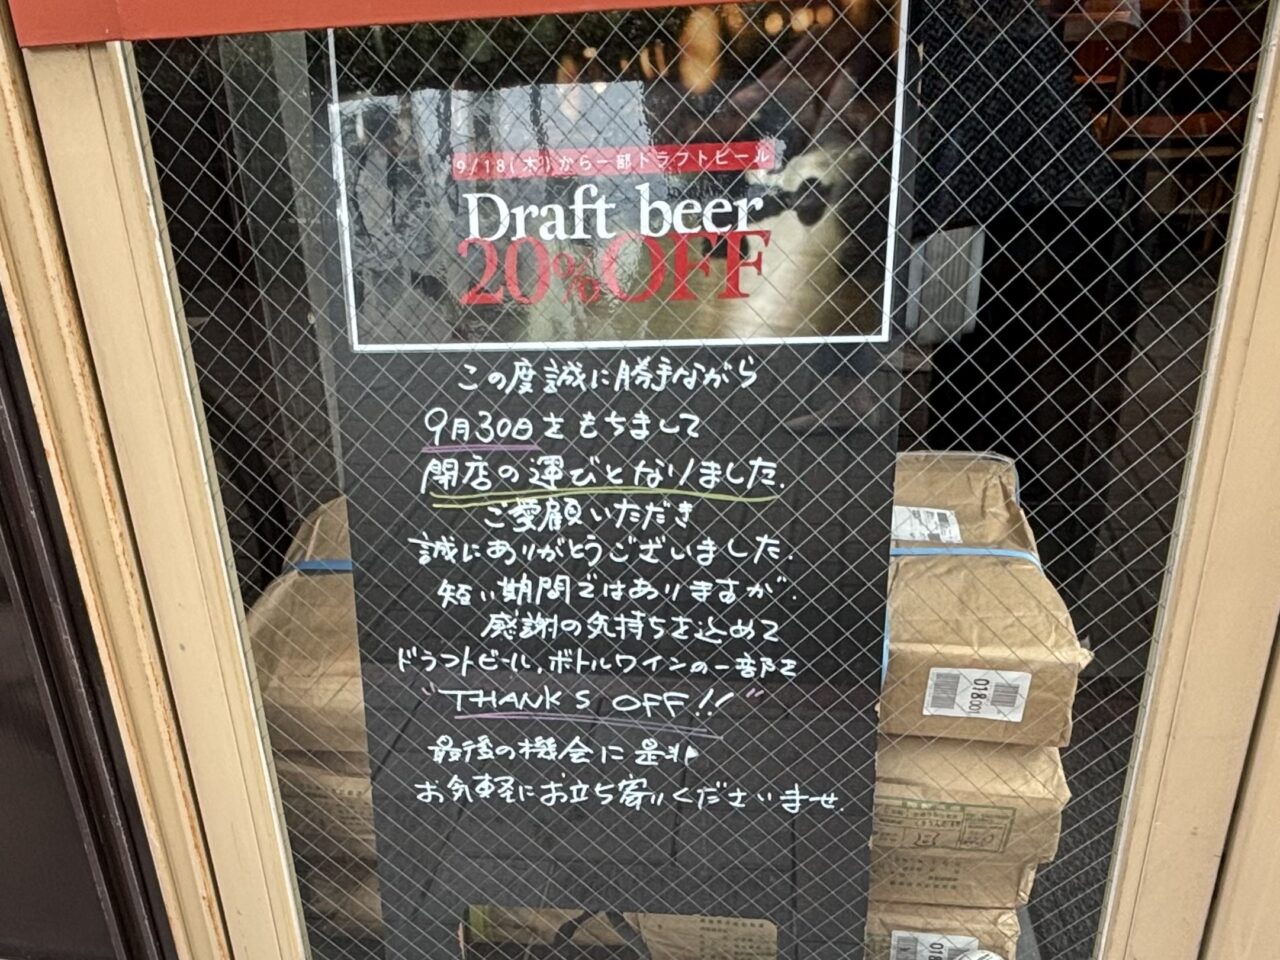 9/18(木)から一部ドラフトビール
Draft beer
20%OFF
この度誠に勝手ながら
9月30日をもちまして
閉店の運びとなりました.
ご愛顧いただき
誠にありがとうございました.
短い期間ではありますが.
感謝の気持ちを込めて
ドラフトビール,ボトルワインの一部を
"THANKS OFF!!"
最後の機会に是非
お気軽にお立ち寄りくださいませ.
018
001
018